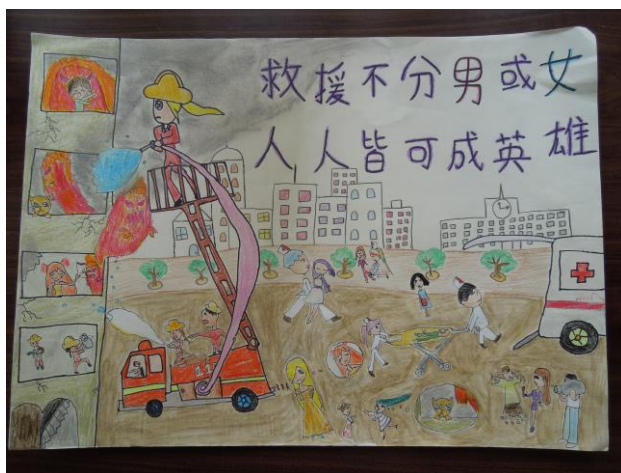 救援不分男或女
人人皆可成英雄